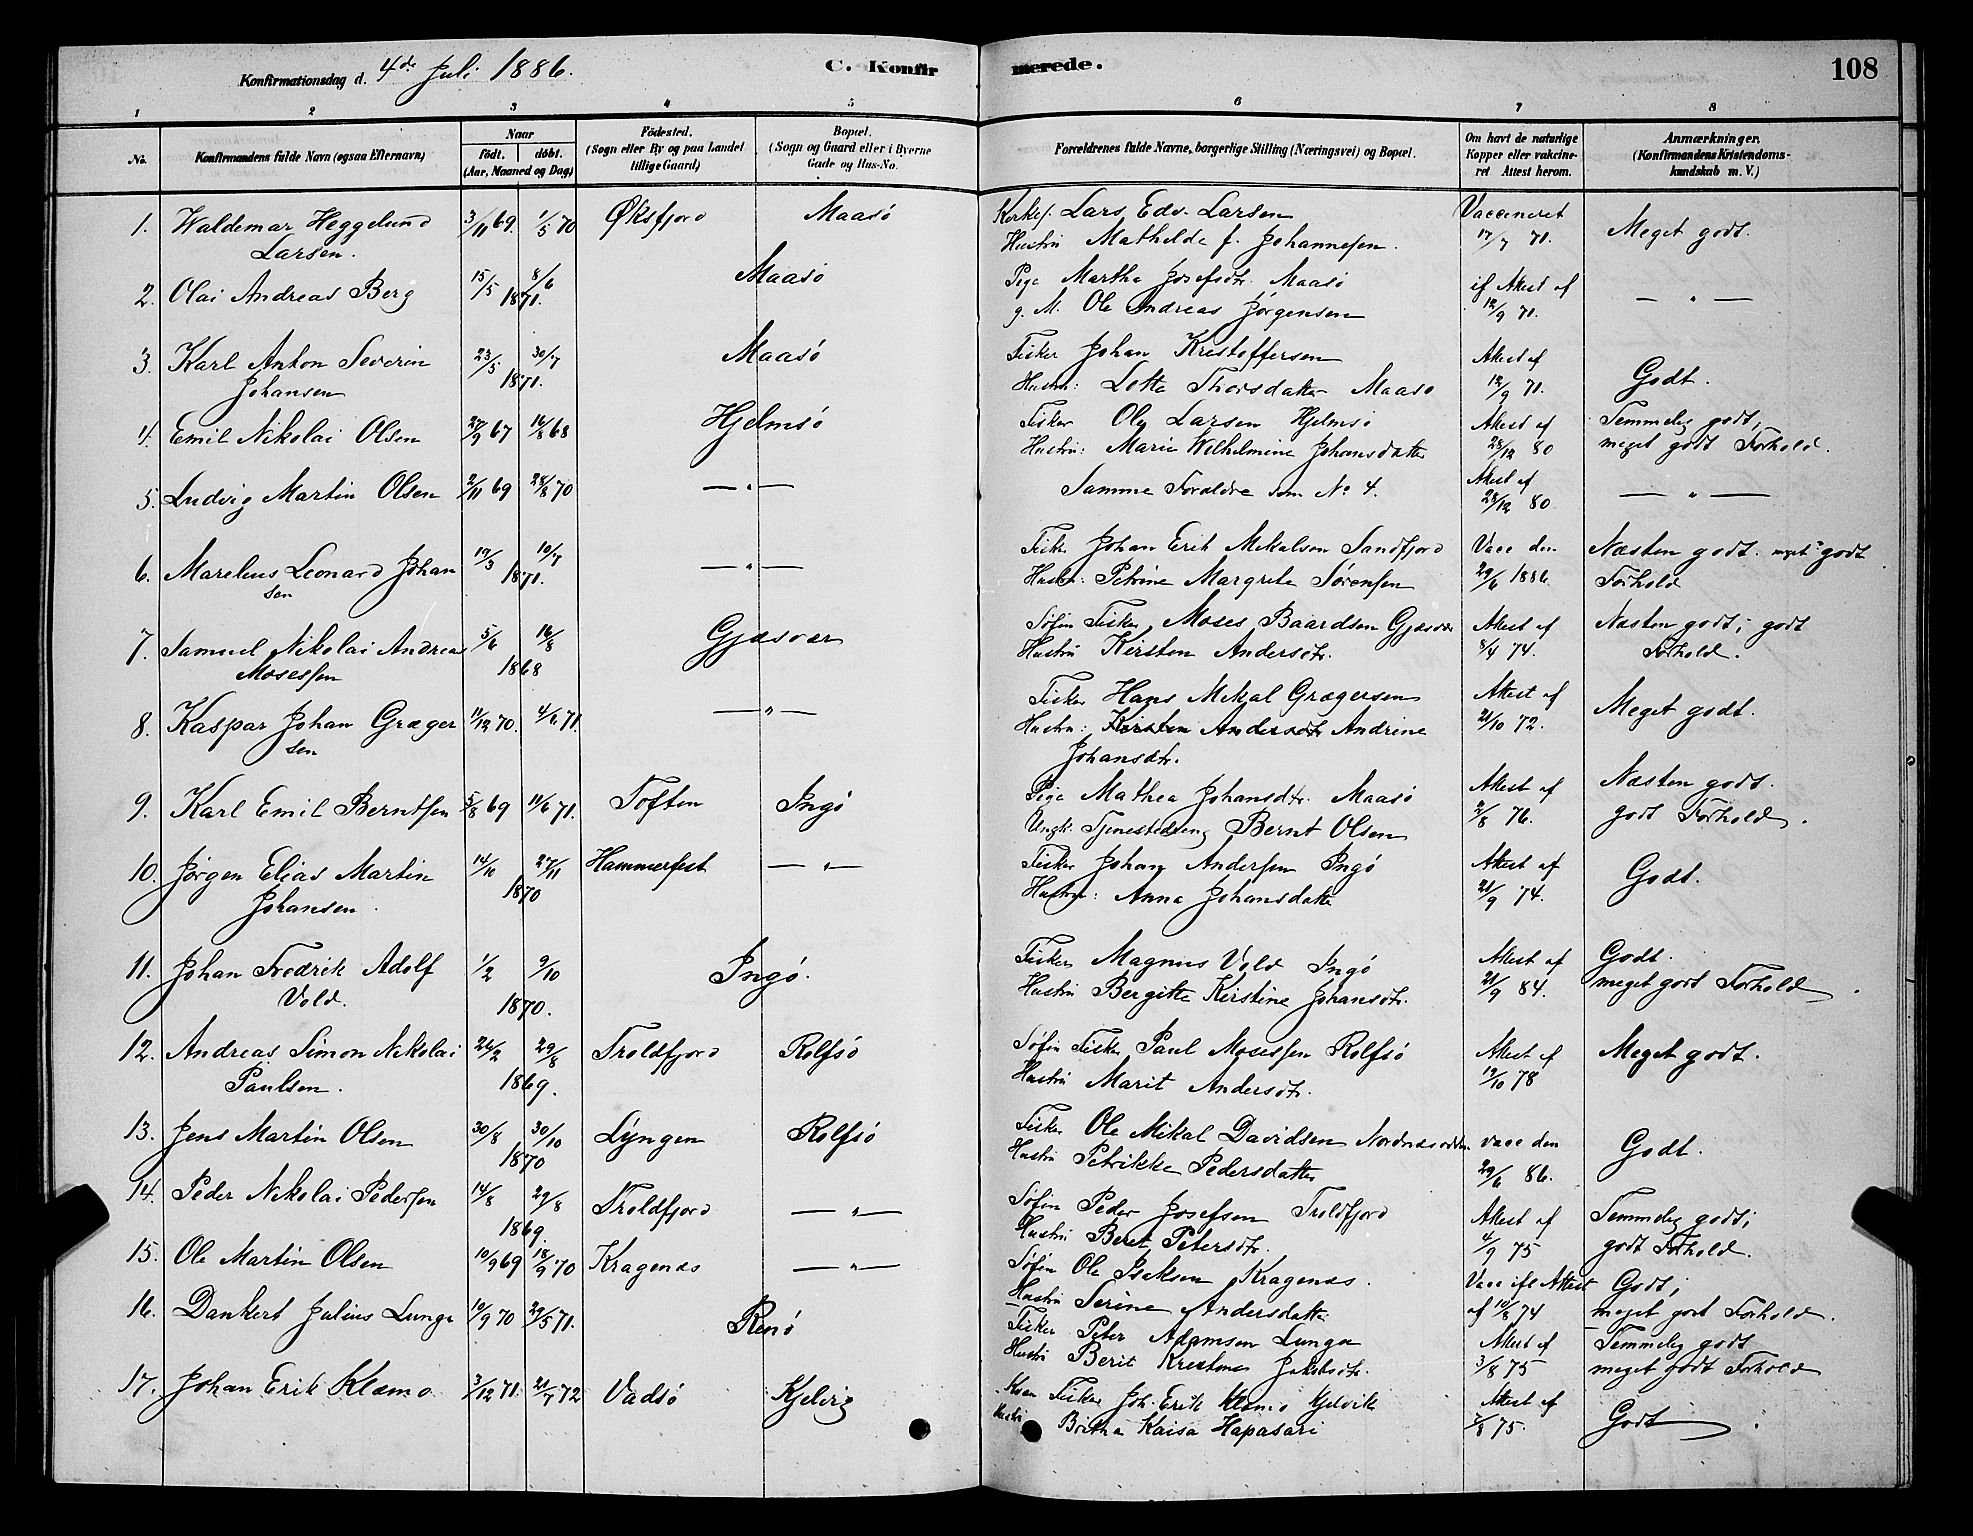 Konfirmationsdag d. 4de Juli 1886.
C. Konfirmerede.
108
1 2 3 4 5 6 7 8
No. Konfirmandens fulde Navn (ogsaa Efternavn) Naar Födested. Bopæl. Forældrenes fulde Navne, borgerlige Stilling (Næringsvei) og Bopæl. Om havt de naturlige Anmærkninger.
födt. döbt. (Sogn eller By og paa Landet (Sogn og Gaard eller i Byerne Kopper eller vakcine- (Konfirmandens Kristendoms-
(Aar, Maaned og Dag) tillige Gaard) Gade og Hus-No. ret Attest herom. kundskab m. V.)
1. Waldemar Heggelund 3/11 69. 1/5 70 Øksfjord Maasø Kirkes. Lars Edv. Larsen Vaccineret Meget godt.
Larsen. Hustru Mathilde f. Johannesen. 17/7 71.
2. Olai Andreas Berg 15/5 8/6 1871. Maasø Pige Martha Josefsdtr. Maasø if Attest af — " —
g. M. Ole Andreas Jørgensen 12/9 71.
3. Karl Anton Severin 23/5 30/7 1871. Maasø Fisker Johan Kristoffersen Attest af Godt.
Johansen Hustru: Lotte Thorsdatter Maasø 12/9 71.
4. Emil Nikolai Olsen 27/9 67 16/8 68 Hjelmsö Fisker Ole Larsen Hjelmsö Attest af Temmelig godt,
Hustru: Marie Wilhelmine Johansdatter 28/12 80 meget godt Forhold.
5. Ludvig Martin Olsen 2/11 69 28/8 70 — " — Samme Forældre som No 4. Attest af 28/12 80. — " —
6. Marelius Leonard Johan 17/3 10/7 1871. — " — Fisker Johan Erik Mikalsen Sandfjord Vacc den Næsten godt. meget godt
sen Hustru: Petrine Margrete Sørensen 29/6 1886. Forhold
7. Samuel Nikolai Andreas 5/6 16/8 1868 Gjæsvær Søfin Fisker Moses Baardsen Gjæsvær Attest af Næsten godt; godt
Mosessen Hustru Kirsten Andersdtr. 8/4 74. Forhold.
8. Kaspar Johan Græger 11/12 70. 4/6 71. — " — Fisker Hans Mikal Grægersen Attest af Meget godt.
sen Hustru: Kirsten Andersdtr Andrine 21/10 72.
Johansdtr.
9. Karl Emil Berntsen 5/8 69 11/6 71. Toften Ingö Pige Mathea Johansdtr. Maasö Attest af Næsten godt.
Ungk. Tjenestedreng Bernt Olsen 2/8 76. godt Forhold.
10. Jørgen Elias Martin 14/10 27/11 1870 Hammerfest — " — Fisker Johan Andersen Ingö Attest af Godt.
Johansen. Hustru: Anna Johansdatter 21/9 74.
11. Johan Fredrik Adolf 1/2 9/10 1870. Ingö. Fisker Magnus Vold Ingö Attest af Godt.
Vold. Hustru Bergitte Kirstine Johansdtr. 21/9 84. meget godt Forhold.
12. Andreas Simon Nikolai 26/2 29/8 1869. Troldfjord Rolfsö Søfin Fisker Paul Mosessen Rolfsö Attest af Meget godt.
Paulsen. Hustru Marit Andersdtr. 19/10 78
13. Jens Martin Olsen 30/8 30/10 1870 Lyngen Rolfsö Fisker Ole Mikal Davidsen Nordnæsodden vacc den Godt.
Hustru Petrikke Pedersdatter 29/6 86.
14. Peder Nikolai Pedersen 14/8 29/8 1869. Troldfjord — " — Søfin Peder Josefsen Troldfjord Attest af Temmelig godt;
Hustru Beret Petersdtr. 4/9 75 godt Forhold.
15. Ole Martin Olsen 10/9 69 18/9 70 Kragenæs — " — Søfin Ole Isaksen Kragenæs. Vacc ifl Attest Godt;
Hustru Serine Andersdatter af 10/8 74 meget godt Forhold.
16. Dankert Julius Lunga 10/9 70 29/5 71. Renö Fisker Peter Adamsen Lunga Attest af Temmelig godt
Hustru Berit Jakobsdtr. 3/8 75 meget godt Forhold
17. Johan Erik Klæmo 3/12 71. 21/7 72 Vadsö Kjelvig Kvæn Fisker Joh. Erik Klæmo Kjelvik Attest af Godt
Hustru Britha Kaisa Hapasari 2/8 75.